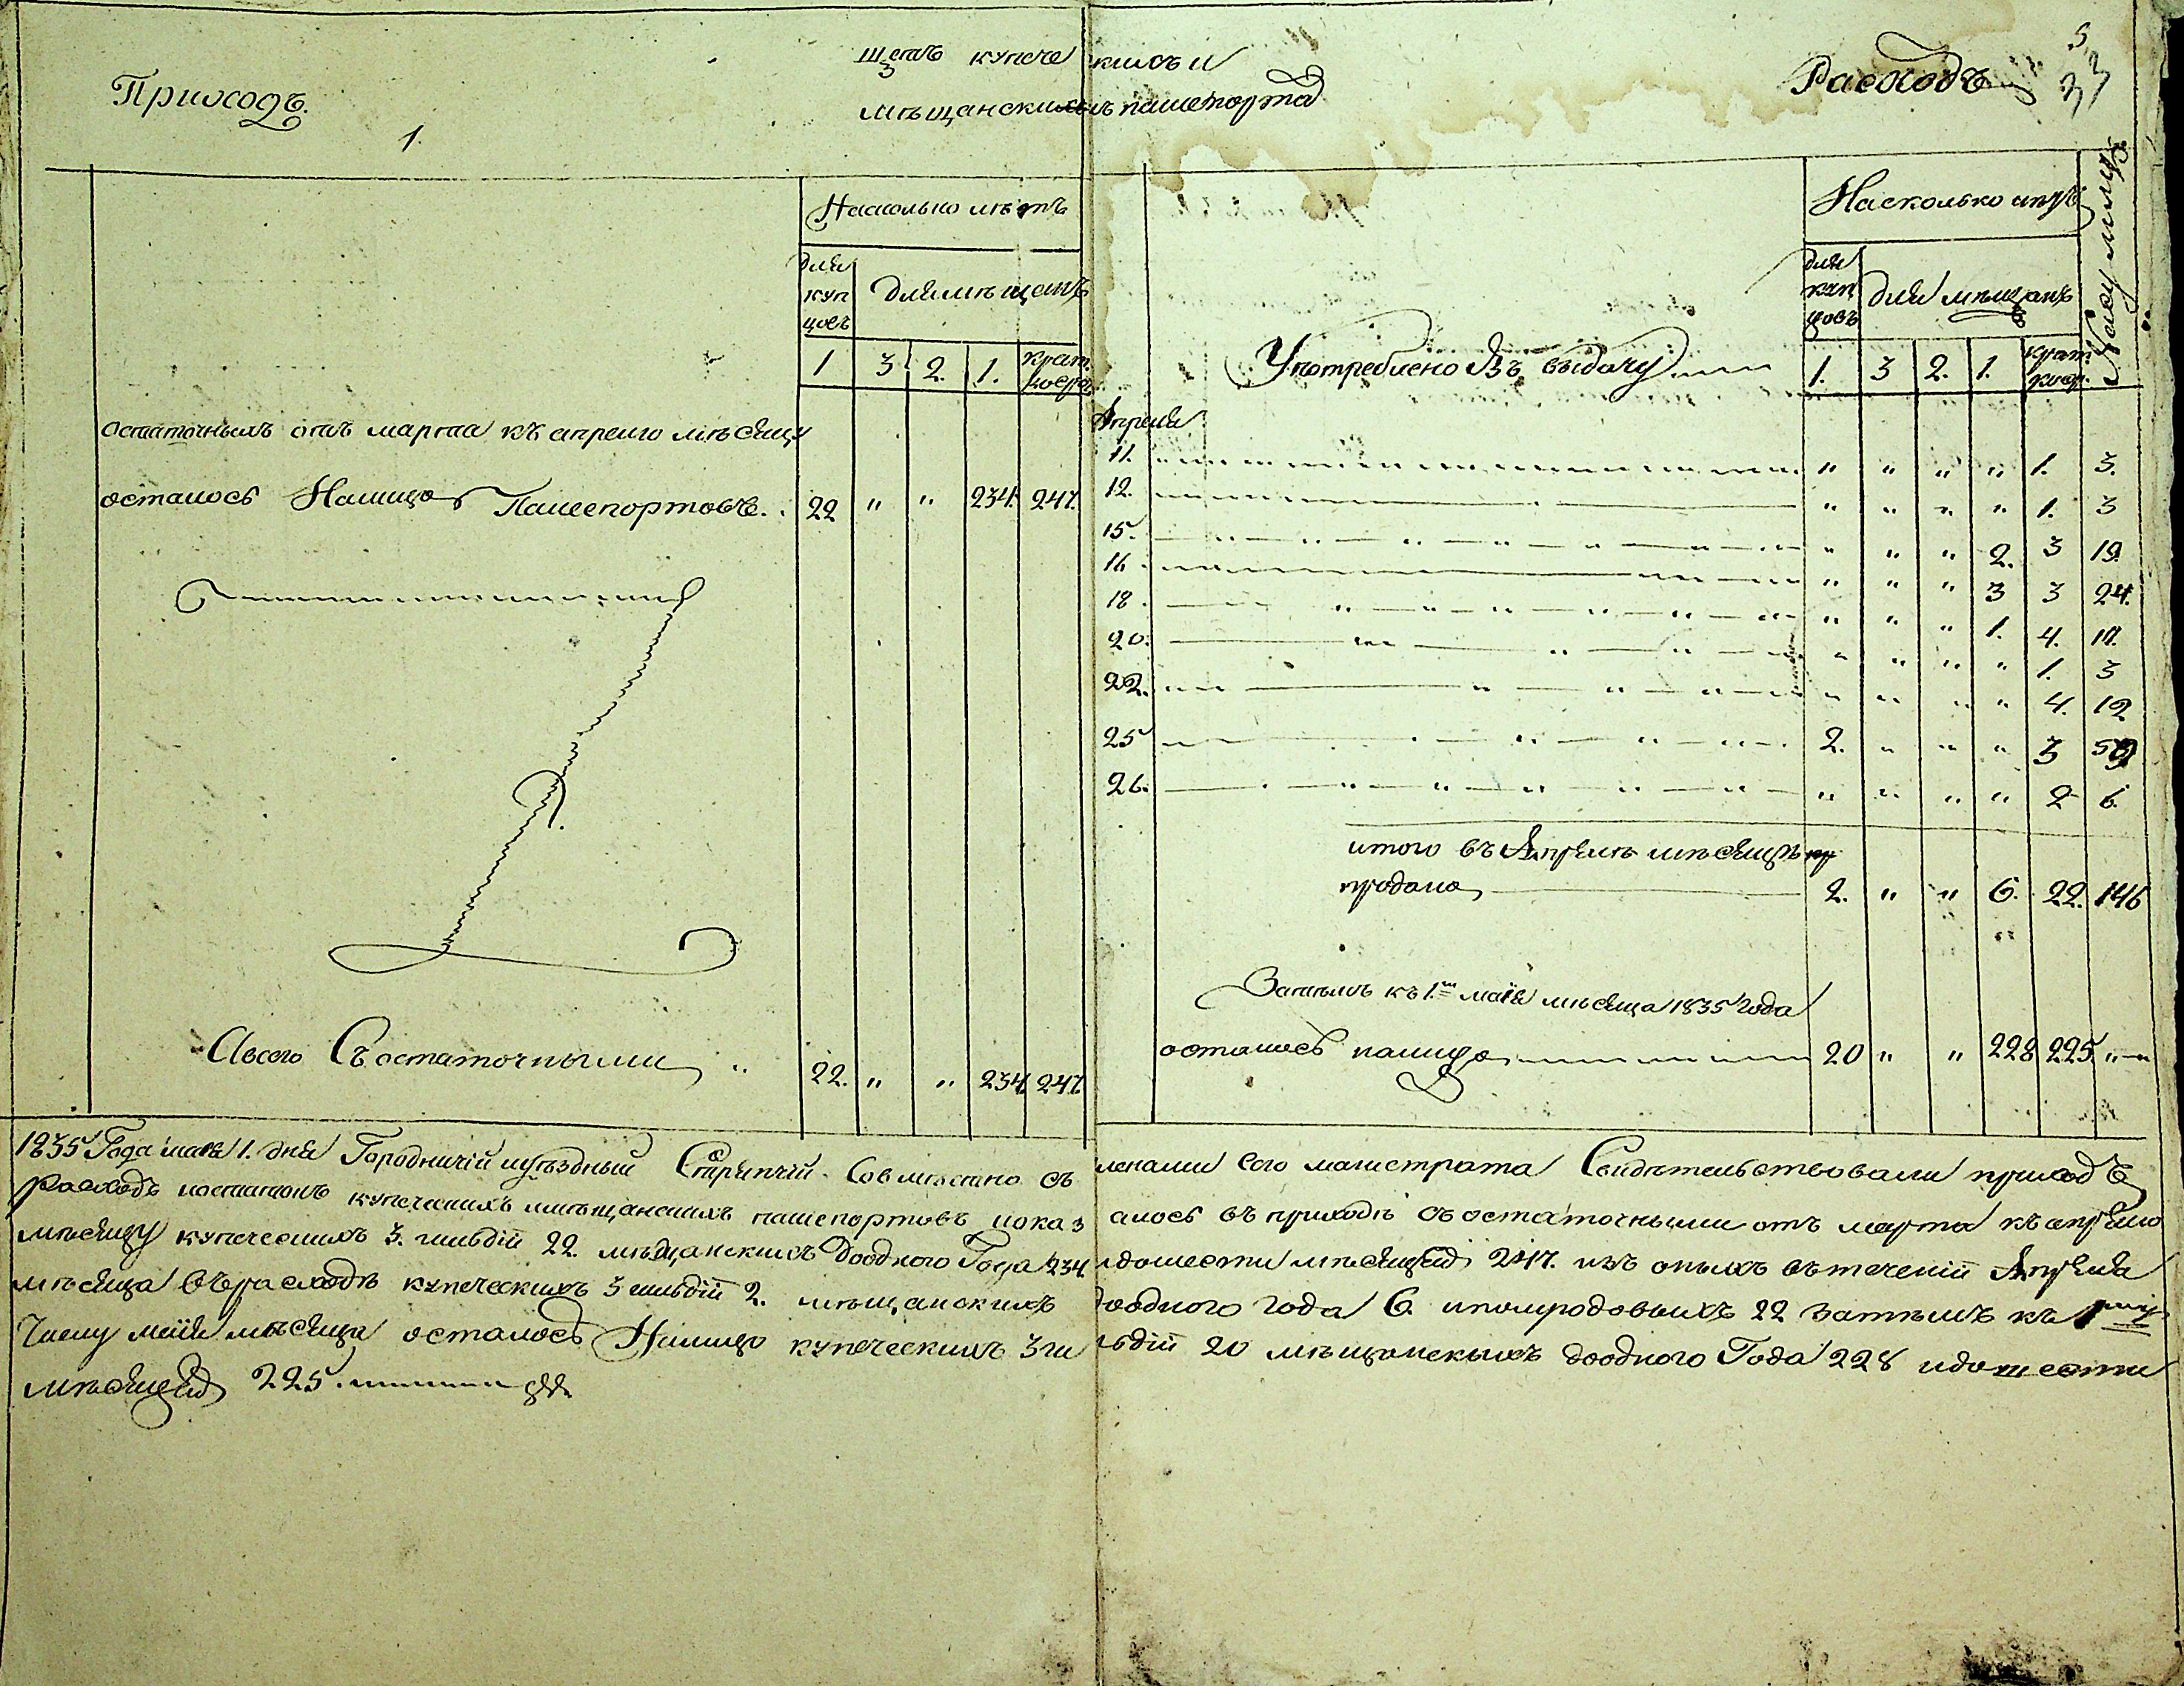 щетъ купече кихъ и
мѣщанскихъ пашепорта
Приходъ.
1.
Насколько лѣтъ
для
куп
цовъ
для мѣщанъ
1 3 2. 1. крат.
коср.
остаточныхъ отъ марта къ апрелю мѣсяцу
осталось Налицо Пашепортовъ. 22 " " 234. 247.
А всего Съ остаточными " 22. " " 234. 247.
Расходъ
5
33
Насколько лѣтъ
для
куп
цовъ
для мѣщанъ
Употреблено Въ выдачу 1. 3 2. 1. крат.
коср.
Апреля
11. " " " " 1. 3.
12. " " " " 1. 3
15. " " " 2. 3 19.
16 " " " 3 3 24.
18. " " " 1. 4. 17.
20. " " " " 1. 3
22. " " " " 4. 12
25 2. " " " 3 59
26. " " " " 2 6.
итого въ Апрелѣ мѣсяцѣ
продано 2. " " 6. 22. 146
Затѣмъ къ 1. маія мѣсяца 1835 года
осталось налицо 20 " " 228 225. "
1835 Года маія 1. дня Городничій и уѣздный Стряпчій Совмѣстно съ членами сего магистрата Свидѣтельствовали приходъ
расходъ и остатокъ купеческихъ и мѣщанскихъ пашепортовъ показ алось въ приходѣ съ остаточными отъ марта къ апрѣлю
мѣсяцу купеческихъ 3. гильдіи 22. мѣщанскихъ до одного Года 234. и до шести мѣсяцей 247. изъ оныхъ въ теченіи Апреля
мѣсяца въ расходѣ купеческихъ 3 гильдіи 2. мѣщанскихъ до одного года 6. и полугодовыхъ 22 затѣмъ къ 1
числу маія мѣсяца осталось Налицо купеческихъ 3 ги льдіи 20 мѣщанскихъ до одного Года 228 и до шести
мѣсяцей 225.